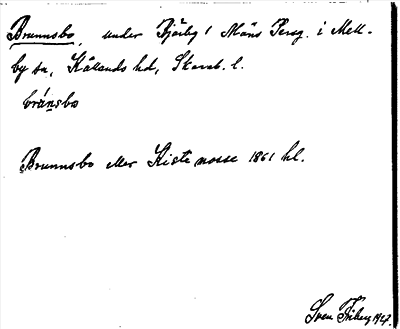 Brunnsbo, under Bjärby 1 Måns Persg. i Mell-
by sn, Kållands hd, Skarab. l.
brúnsbo
Brunnsbo eller Kistemosse 1861 hl.
Sven Friberg 1927.